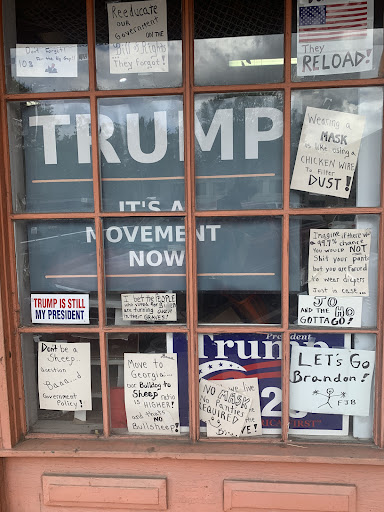 Don't Forget!
Reeducate
OUR
Government ON THE
Bill of RIGHTS
They Forgot!
They
RELOAD!
TRUMP
IT'S A
MOVEMENT
NOW
Wearing a
MASK
is like using a
CHICKEN WIRE
To Filter
DUST!
Imagine if there was
a 99.7% chance
You WOULD NOT
Shit your pants
but you are Forced
To wear diapers
Just in case...
JO HO
AND THE
GOTTA GO!
TRUMP IS STILL
MY PRESIDENT
I bet the PEOPLE
who voted for Biden
are turning over
in their GRAVES!
Don't be a
Sheep...
Question
Government
Policy!
Move to
Georgia...
our Bulldog to
Sheep ratio
is HIGHER!
and thats
NO
Bullsheep!
President
Trump
NO we live
MASK
No Panties
REQUIRED
LET'S Go
Brandon!
FJB